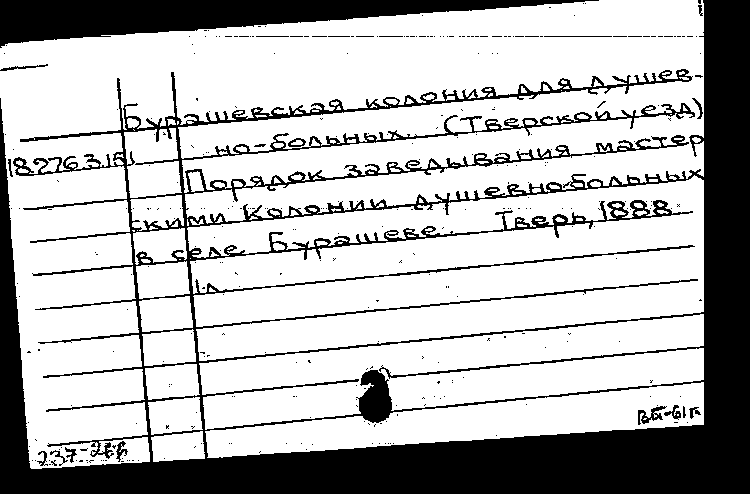 Бурашевская колония для душев-
но-больных. (Тверской уезд)
18.276.3.151
Порядок заведывания мастер
скими колонии душевно-больных
в селе Бурашеве. Тверь, 1888
1 л.
ВБ-61г